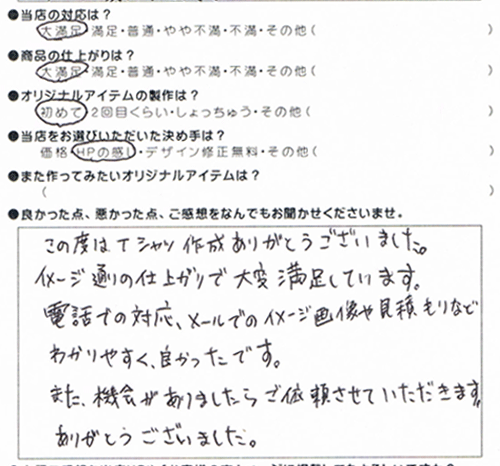 ●当店の対応は？
大満足・満足・普通・やや不満・不満・その他(　)
●商品の仕上がりは？
大満足・満足・普通・やや不満・不満・その他(　)
●オリジナルアイテムの製作は？
初めて・2回目くらい・しょっちゅう・その他(　)
●当店をお選びいただいた決め手は？
価格・HPの感じ・デザイン修正無料・その他(　)
●また作ってみたいオリジナルアイテムは？
(　)
●良かった点、悪かった点、ご感想をなんでもお聞かせくださいませ。
この度はTシャツ作成ありがとうございました。
イメージ通りの仕上がりで大変満足しています。
電話での対応、メールでのイメージ画像や見積もりなど
わかりやすく、良かったです。
また、機会がありましたらご依頼させていただきます。
ありがとうございました。